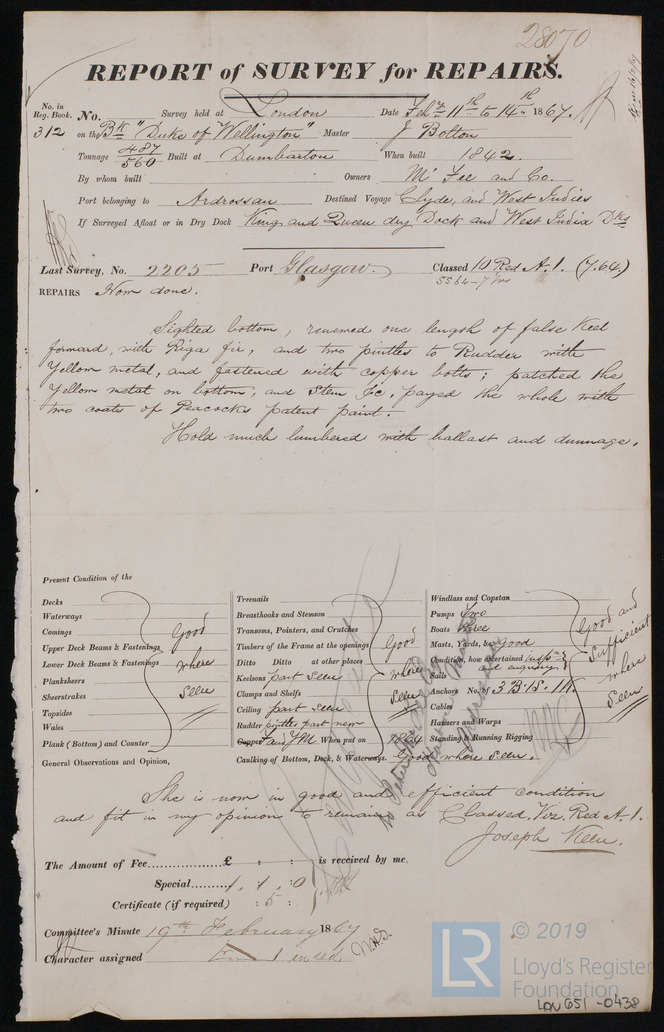 28070
REPORT of SURVEY for REPAIRS.
No. in Reg. Book. No. Survey held at London Date Feby 11th to 14th 1867.
312 on the Bk "Duke of Wellington" Master J Bolton
Tonnage 487/560 Built at Dumbarton When built 1842.
By whom built Owners McFee and Co.
Port belonging to Ardrossan Destined Voyage Clyde, and West Indies
If Surveyed Afloat or in Dry Dock King and Queen dry Dock and West India Dks
Last Survey, No. 2205 Port Glasgow. Classed 10 Red A.1. (7.64.)
SS 64-7 yrs
REPAIRS Now done.
Sighted bottom, renewed one length of false Keel
forward, with Riga fir, and two pintles to Rudder with
Yellow metal, and fastened with copper bolts; patched the
Yellow metal on bottom, and Stem &c, payed the whole with
two coats of Peacocks patent paint.
Hold much lumbered with ballast and dunnage.
Present Condition of the
Decks
Waterways
Comings
Upper Deck Beams & Fastenings
Lower Deck Beams & Fastenings
Planksheers
Sheerstrakes
Topsides
Wales
Plank (Bottom) and Counter
Good
where
Seen
Treenails
Breasthooks and Stemson
Transoms, Pointers, and Crutches
Timbers of the Frame at the openings
Ditto Ditto at other places
Keelsons part seen
Clamps and Shelfs
Ceiling part seen
Rudder pintles part new
Copper and YM When put on 1864
Caulking of Bottom, Deck, & Waterways. Good where seen.
Good
where
Seen
Windlass and Capstan
Pumps two
Boats three
Masts, Yards, &c good
Condition, how ascertained insptn
and enquiry
Sails
Anchors No. of 3 B. 1 S. 1 K.
Cables
Hawsers and Warps
Standing & Running Rigging
Good and
Sufficient
where
Seen
General Observations and Opinion,
She is now in good and efficient condition
and fit in my opinion to remain as Classed. Viz. Red A.1.
Joseph Keen.
The Amount of Fee £ : : is received by me,
Special 1 . 1 . 0
Certificate (if required) : 5 :
Committee's Minute 19th February 1867
Character assigned
© 2019
LR
Lloyd's Register
Foundation
LON 651 -0438